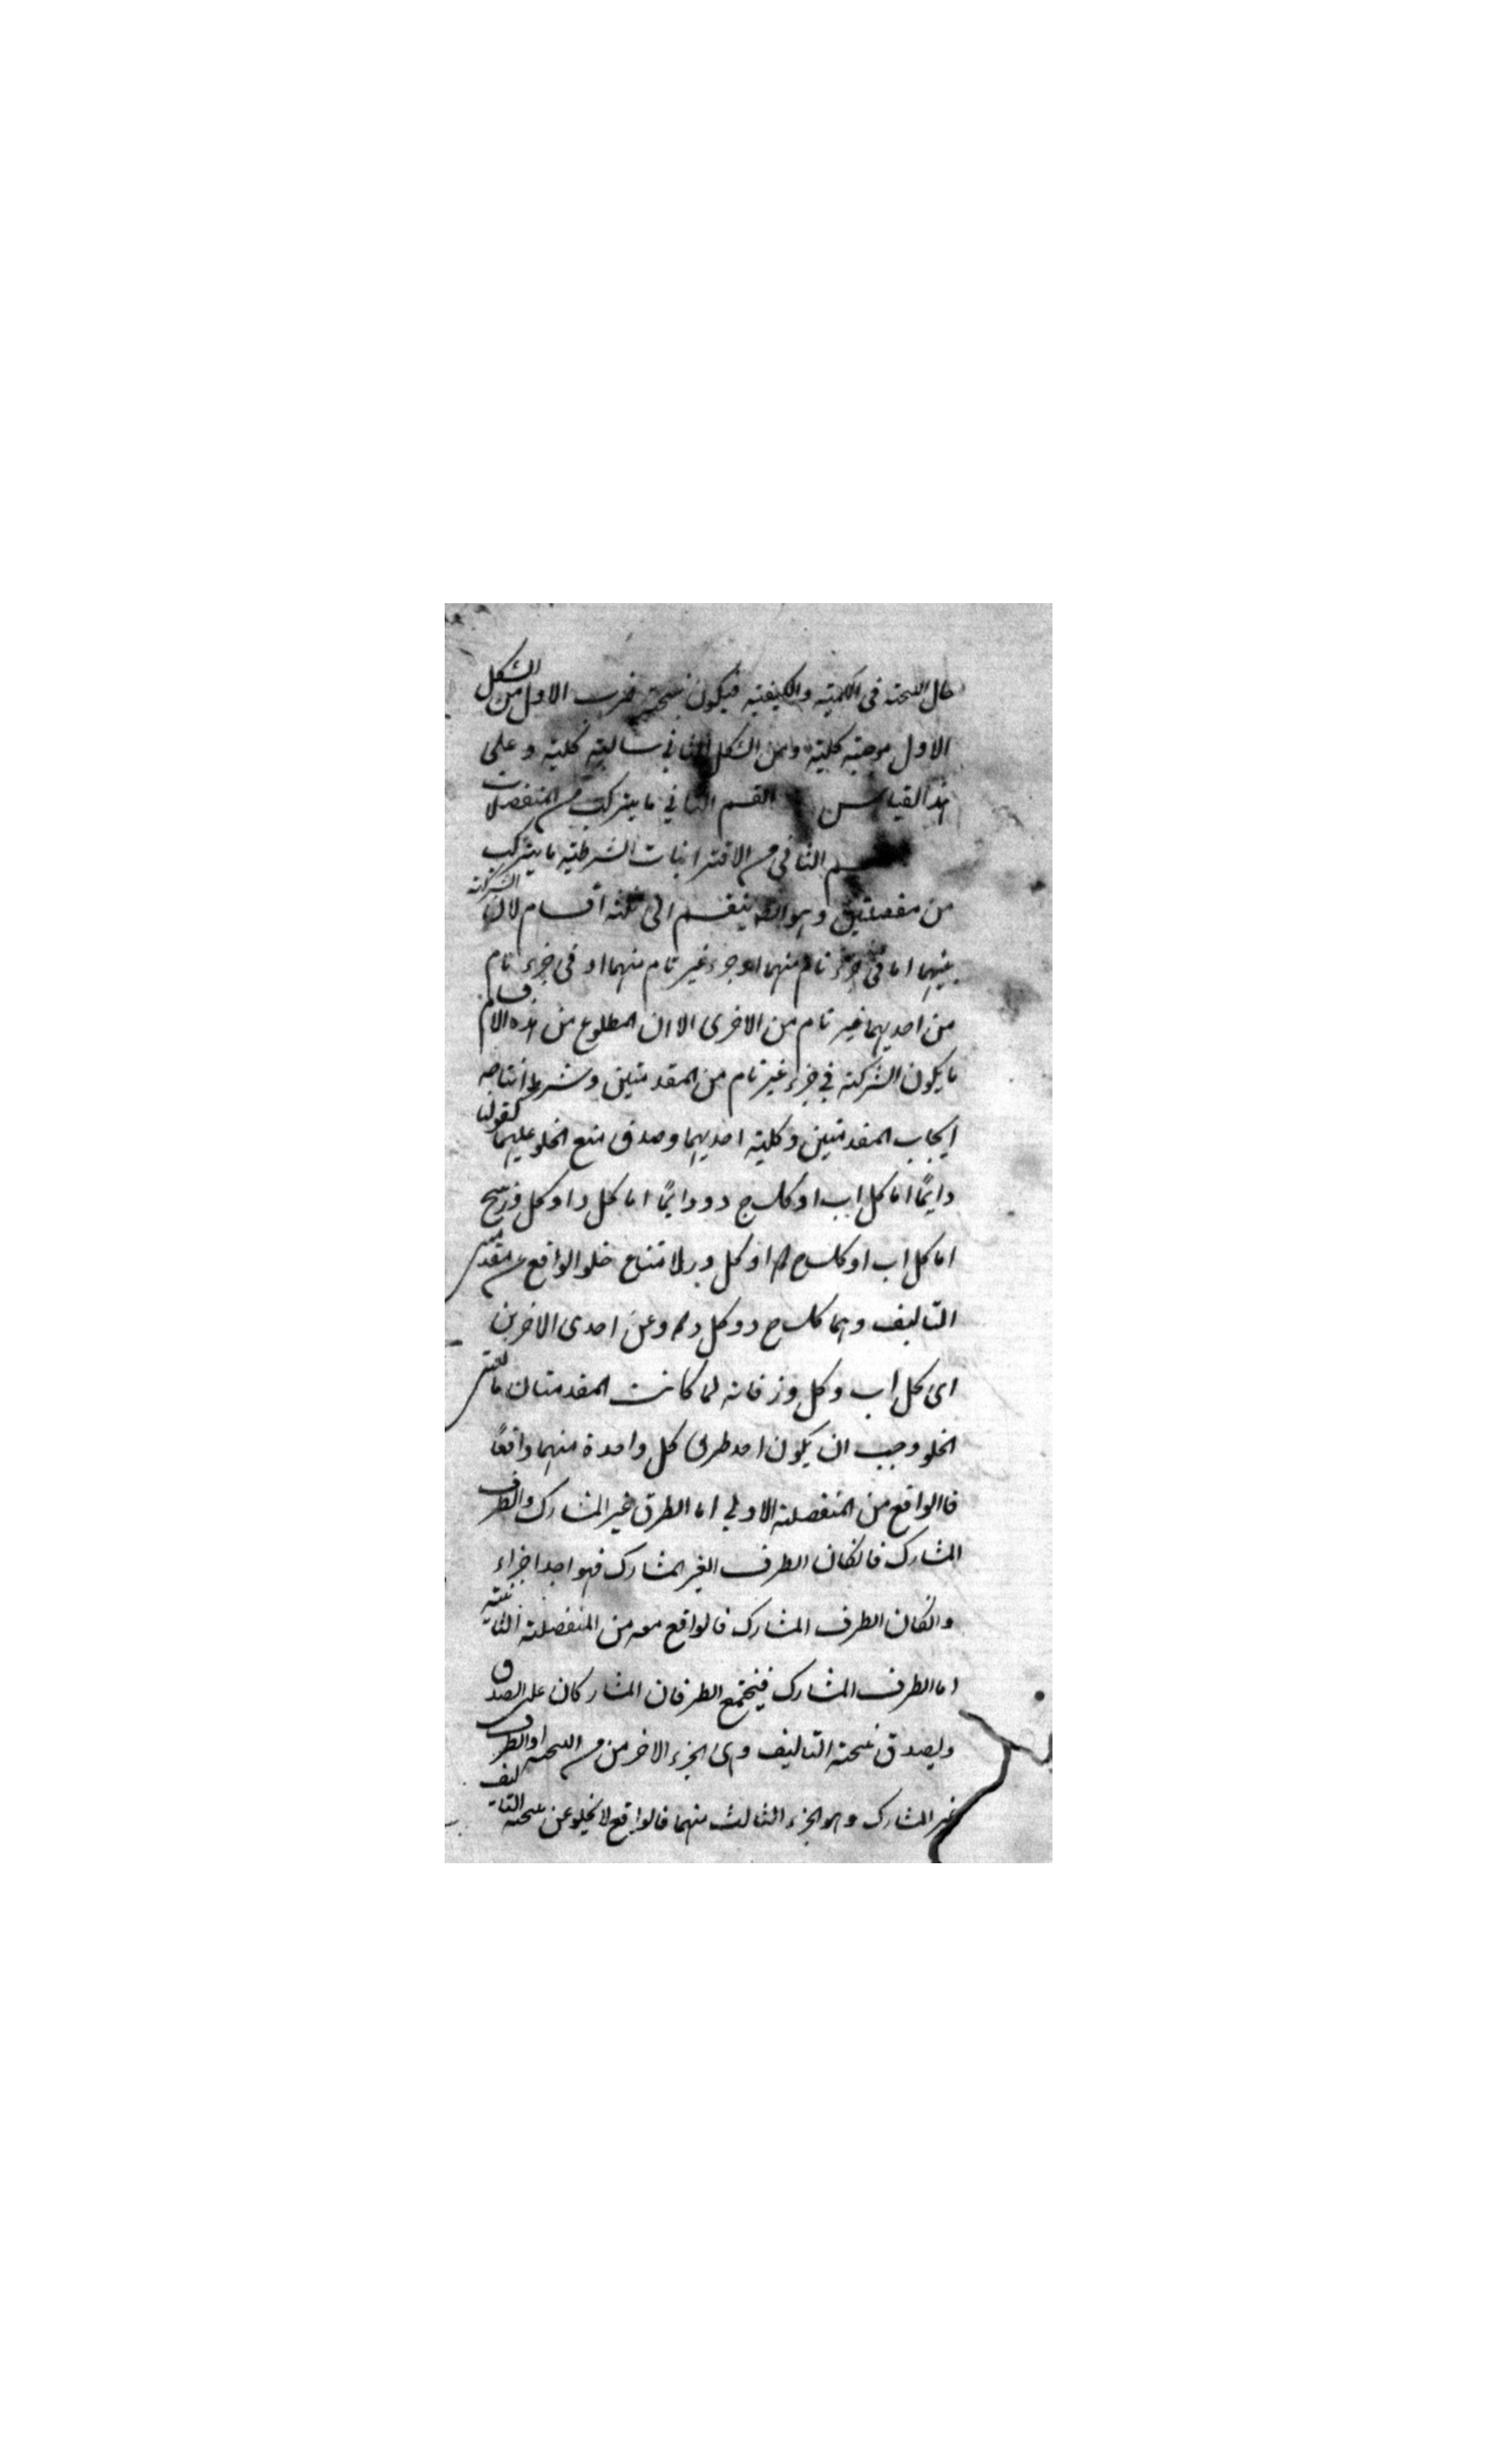 حال النتيجة فى الكمية والكيفية فيكون نتيجة ضرب الاول من الشكل
الاول موجبة كلية ومن الشكل الثانى سالبة كلية وعلى
هذا القياس القسم الثانى ما يتركب من المنفصلات
الثانى من الاقترانيات الشرطية ما يتركب
من منفصلتين وهو ايضا ينقسم الى ثلثة اقسام لان الشركة
بينهما اما فى جزء تام منهما او جزء غير تام منهما او فى جزء تام
من احديهما غير تام من الاخرى الا ان المطلوع من هذه الاقسام
ما يكون الشركة في جزء غير تام من المقدمتين وشرط انتاجه
ايجاب المقدمتين وكلية احديهما وصدق منع الخلو عليهما كقولنا
دايمًا اما كل اب او كل ج د ودايمًا اما كل د ا و كل وز ينتج
اما كل اب او كل ج ه او كل وز لامتناع خلو الواقع عن مقدمتى
التاليف وهما كل ج د وكل د ه وعن احدى الاخرين
اى كل اب وكل وز فانه لما كانت المقدمتان مانعتى
الخلو وجب ان يكون احد طرفى كل واحدة منهما واقعًا
فالواقع من المنفصلة الاولي اما الطرق غير المشارك والطرف
المشارك فانكان الطرف الغير المشارك فهو احد اجزاء
وانكان الطرف المشارك فالواقع معه من المنفصلة الثانية
اما الطرف المشارك فيجتمع الطرفان المشاركان على الصدق
ويصدق نتيجة التاليف وهى الجزء الاخر من النتيجة او الطرف
غير المشارك وهو الجزء الثالث منهما فالواقع لا يخلو عن نتيجة التاليف